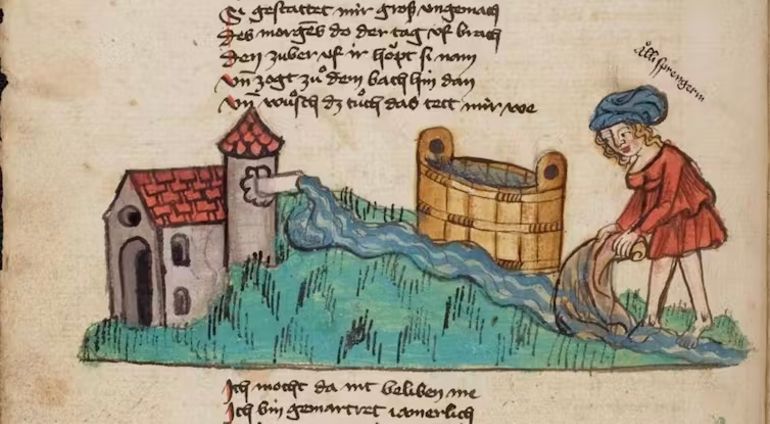 Si gestattet mir groß ungemach
Des morgēs do der tag vf brach
Den zuber vf ir hŏpt si nam
Vn̄ zogt zů dem bach hin dan
Vn̄ wůsch dz tůch das tett mir we
Älli sprengerin
Ich mocht da nit beliben me
Ich bin gemartret iomerlich